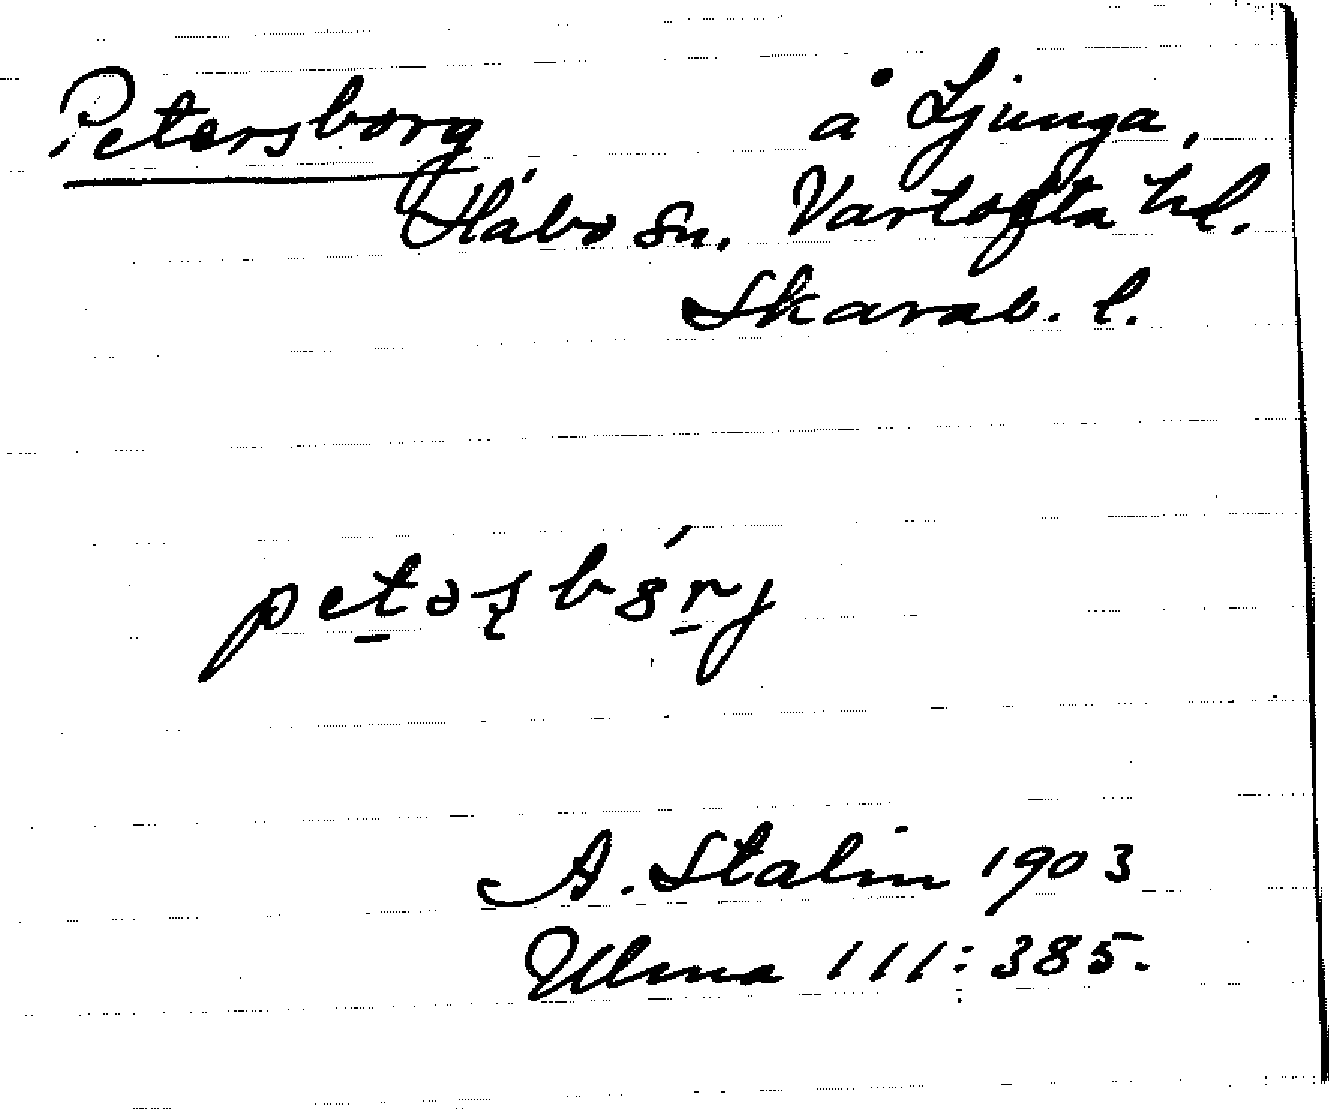 Petersborg å Ljunga,
Håbo sn. Vartofta hd.
Skarab. l.
A. Stalin 1903
Ulma 111:385.